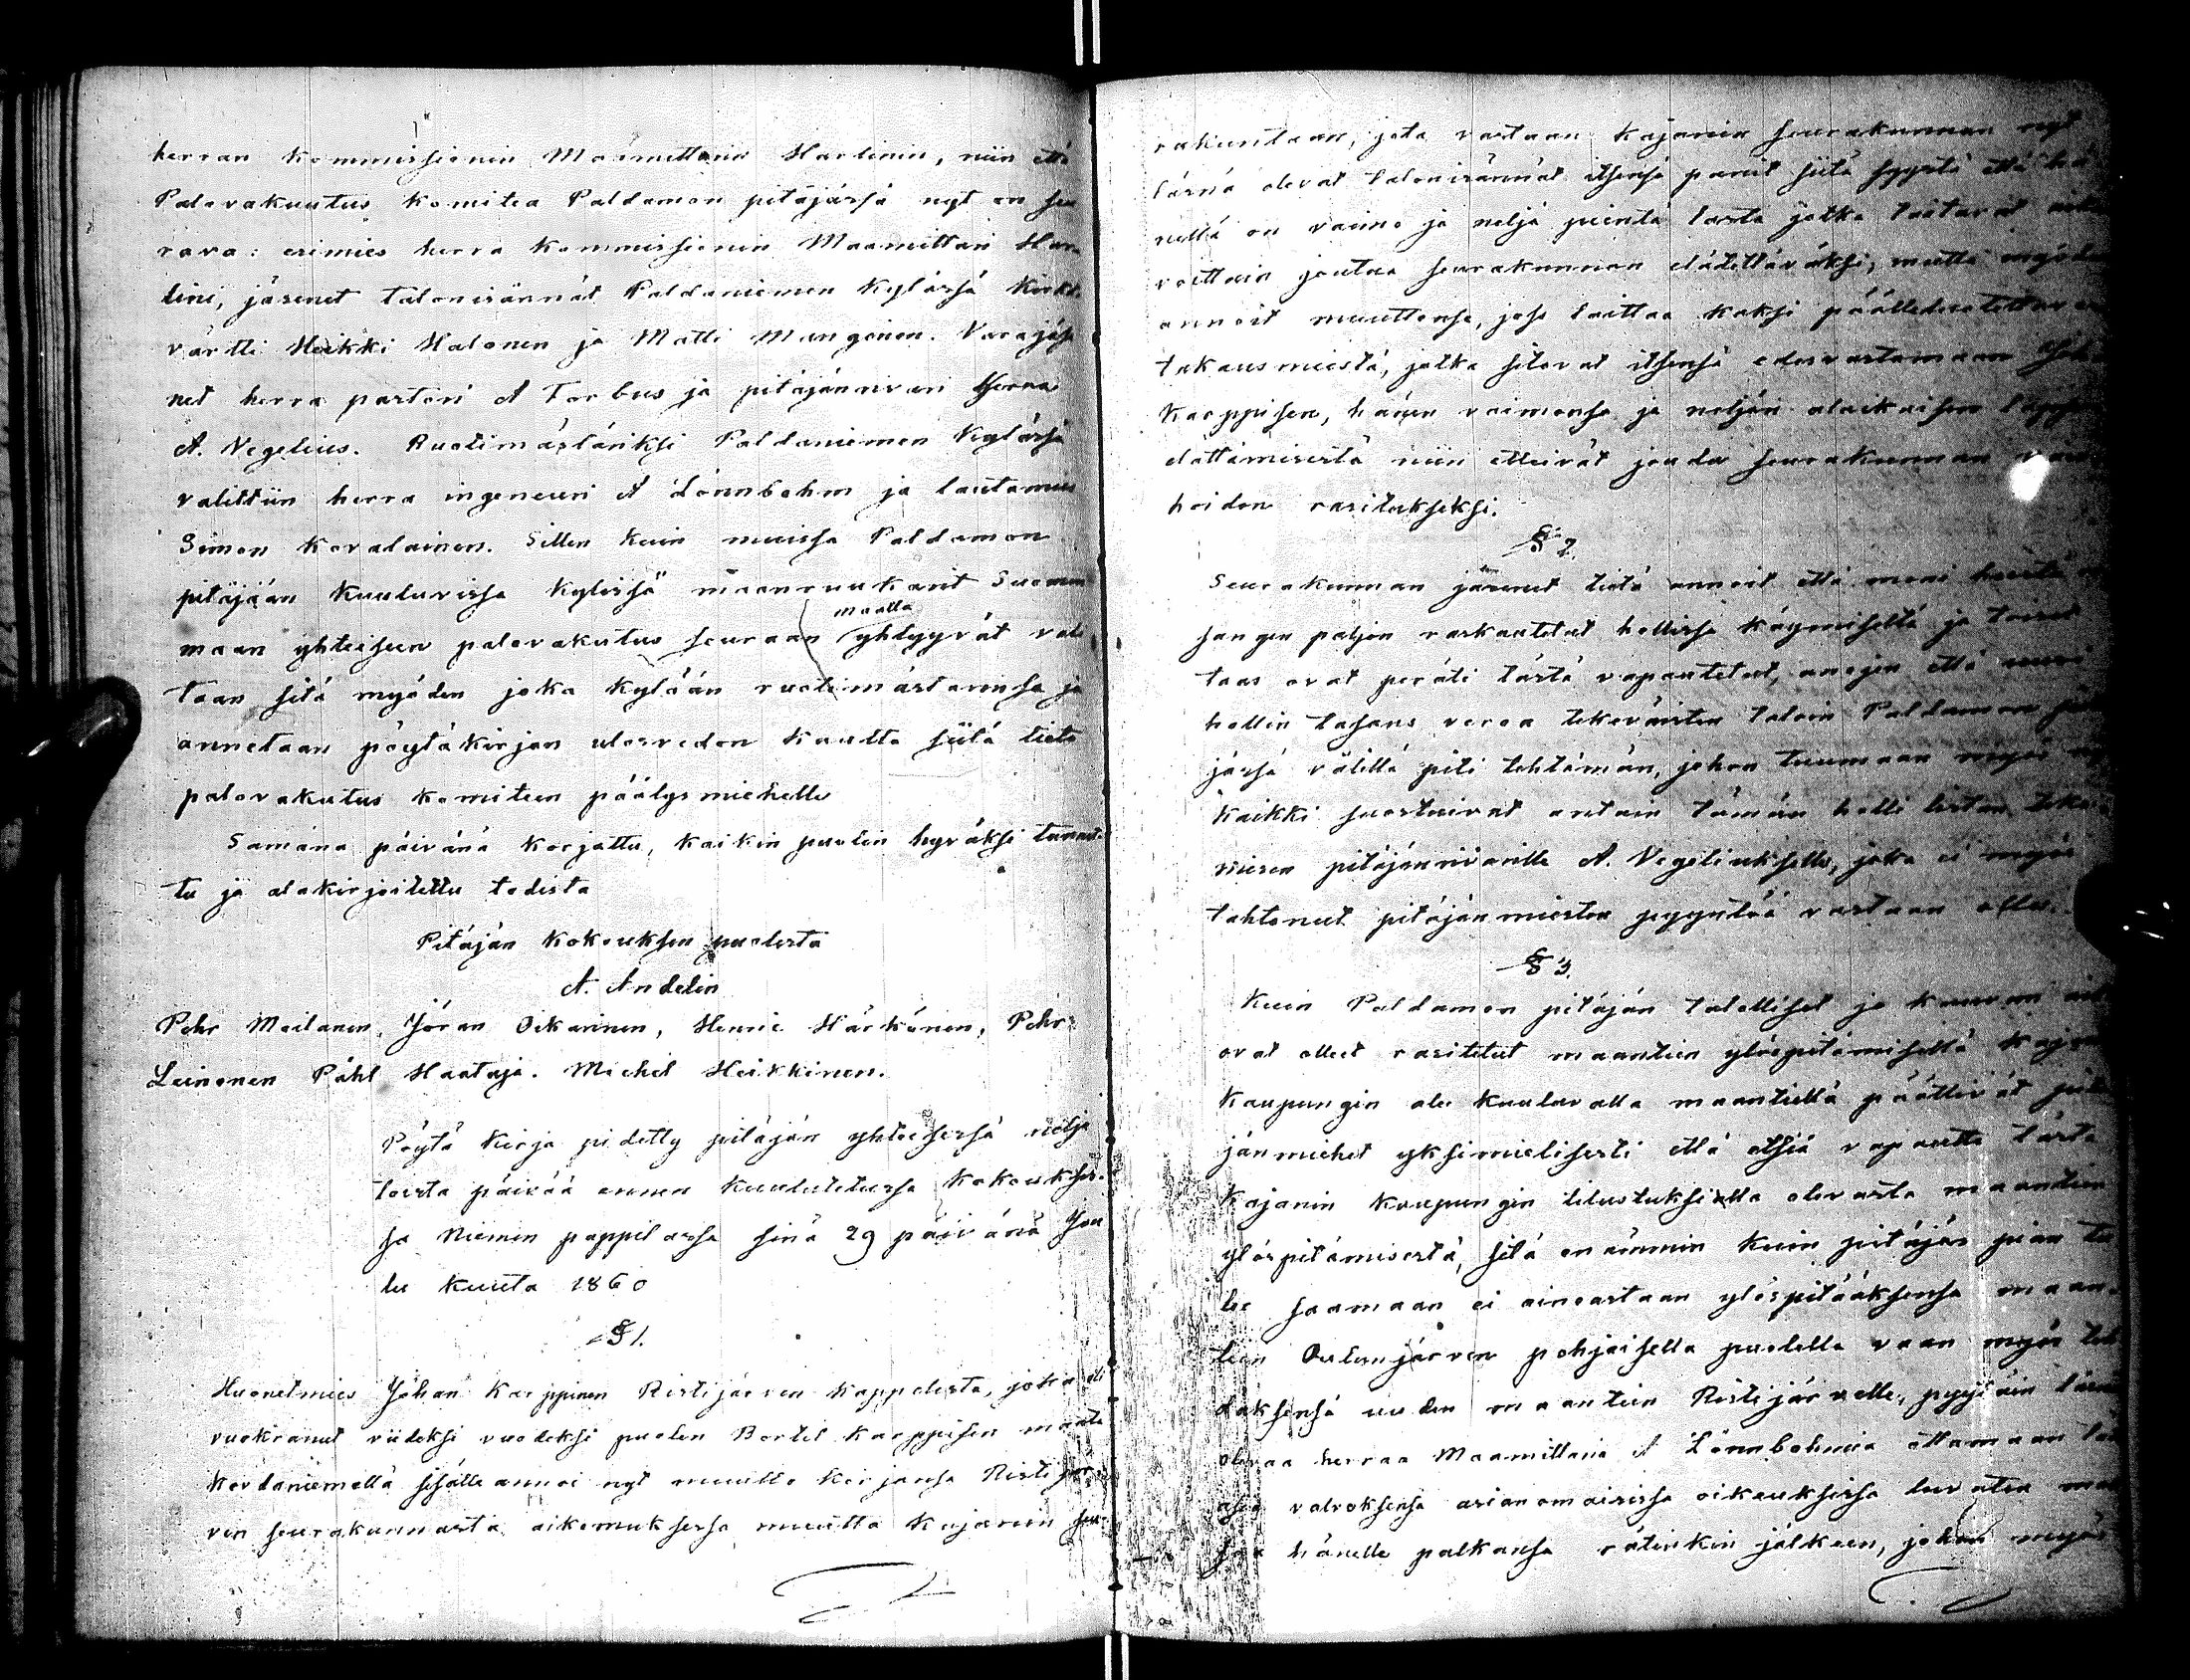 herran Kommissionin Maamittarin Harlinin, niin että
Palovakuutus Komitea Paldamon pitäjässä nyt on seu
rava: esimies herra Kommissionin Maamittari Har
lini, jäsenet talonisännät Paldaniemen Kylässä Kirkk.
värtti Heikki Halonen ja Matti Mungonen. Varajäse
net herra pastori A Forbus ja pitäjännivari Herra
A. Vegelius. Ruotimästäriksi Paldaniemen Kylässä
valittiin herra ingeneuri A Lönnbohm ja lautamies
Simon Kovalainen. Sillen kuin muissa Paldamon
pitäjään Kuuluvissa Kylissä maanruukarit Suomen
maalla
maan yhteiseen palovakutus seuraan yhtyyvät vali
taan sitä myöden joka Kylään ruotimästarinsa ja
annetaan pöytäkirjan ulosvedon kautta siitä tieto
palovakutus komiteen päälysmiehelle
Samana päivänä korjattu, kaikin puolin hyväksi tunnet-
tu ja alakirjoitettu todista
Pitäjän Kokouksen puolesta
A. Andelin
Pehr Moilanen, Jöran Oikarinen, Henric Härkönen, Pehr
Leinonen Påhl Haataja. Michel Heikkinen.
Pöytä Kirja pidetty pitäjän yhteisessä neljä
toista päivää ennen kuulutetussa Kokoukses-
sa Niemen pappilassa sinä 29 päivänä Jou
lu kuuta 1860
§ 1.
Huonetmies Johan Karppinen Ristijärven kappelista, joka oli
vuokranut viideksi vuodeksi puolen Bertel Karppisen maata
Kordaniemellä sisälle annoi nyt muutto kirjansa Ristijär-
ven seurakunnasta aikomuksessa muutta Kajanin seu-
rakuntaan, jota vastaan Kajanin seurakunnan nyt
läsnä olevat talonisännät itsensä panit siitä syystä että hä
nellä on vaimo ja neljä pientä lasta jotka taitavat
voittain joutua seurakunnan elätettäväksi, mutta myöden
annoit muuttonsa, jos laittaa kaksi päälleluotettavaa
takausmiestä, jotka sitovat itsensä edesvastamaan Joh
Karppisen, hänen vaimonsa ja neljän alaikaisen lapsen
elattämisestä niin etteivät joudu seurakunnan vaivais
hoidon rasitukseksi.
§ 2.
Seurakunnan jäsenet tietä annoit että moni heistä on
sangen paljon raskautetut hollissa käymisellä ja toiset
taas ovat peräti tästä vapautetut, anojen että uusi
hollin tasans veroa tekeväisten taloin Paldamon pitä
jässä välillä piti tehtämän, johon tuumaan myös
kaikki suostuivat antain tämän holli listan teke
misen pitäjännivarille A. Vegeliukselle, joka ei myös
tahtonut pitäjänmiesten pyyntöä vastaan olla.
§ 3.
Kuin Paldamon pitäjän talolliset jo kauvan
ovat olleet rasitetut maantien ylöspitämisellä Kajanin
Kaupungin ala kuuluvalla maantiellä päättivät pitä
jänmiehet yksimielisesti että etsiä vapautta tästä
Kajanin kaupungin tilustuksilla olevasta maantien
ylöspitämisestä, sitä enämmin kuin pitäjäs pian tu
lee saamaan ei ainoastaan ylöspitääksensä maan-
tien Oulunjärven pohjaisella puolella vaan myös teh
däksensä uuden maantien Ristijärvelle, pyytäin läsnä
olevaa herraa Maamittaria A Lönnbohmia ottamaan
asia valvoksensa asianomaisissa oikeuksissa luvaten
saa hänelle palkansa rätinkin jälkeen, johon myös